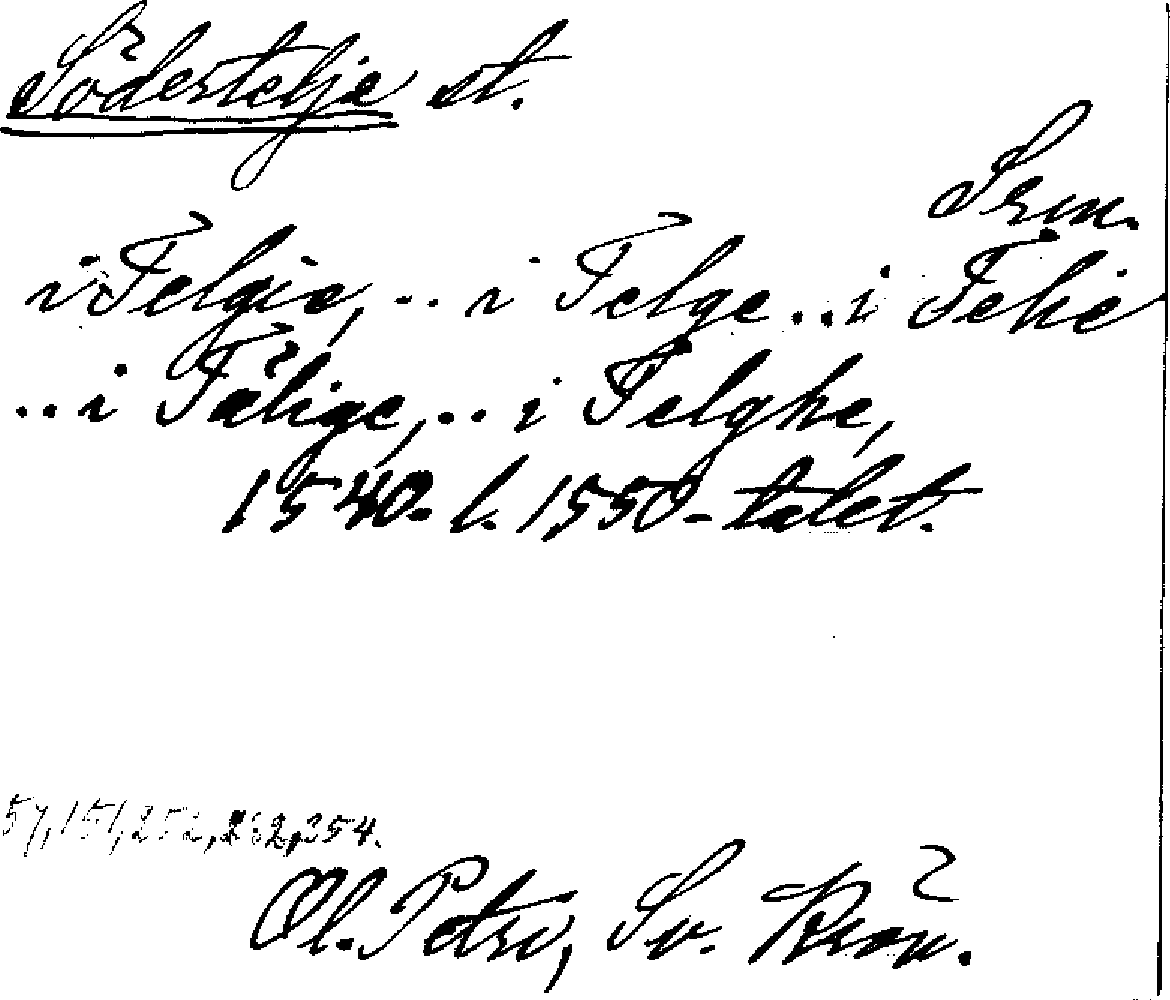 Södertelje st.
Srm.
i Telgie, .. i Telge .. i Telie
.. i Tälige, .. i Telghe,
1540- l. 1550-talet.
57, 151, 252, 262, 354.
Ol. Petri, Sv. Krön.